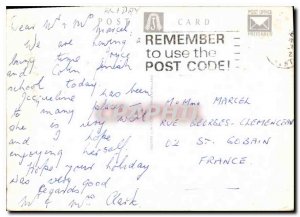 HOLIDAY
POST CARD
POST OFFICE
PREFERRED
REMEMBER
to use the
POST CODE!
Dear Mr & Mrs Marcel,
We are having
a lovely time
and Colin
school today.
Jacqueline has been
to many places
she is
I hope
enjoying herself.
Hope your holiday
was very good
Regards
Mr & Mrs Clark
M & Mme MARCEL
RUE GEORGES CLEMENCEAU
02 ST. GOBAIN
FRANCE.